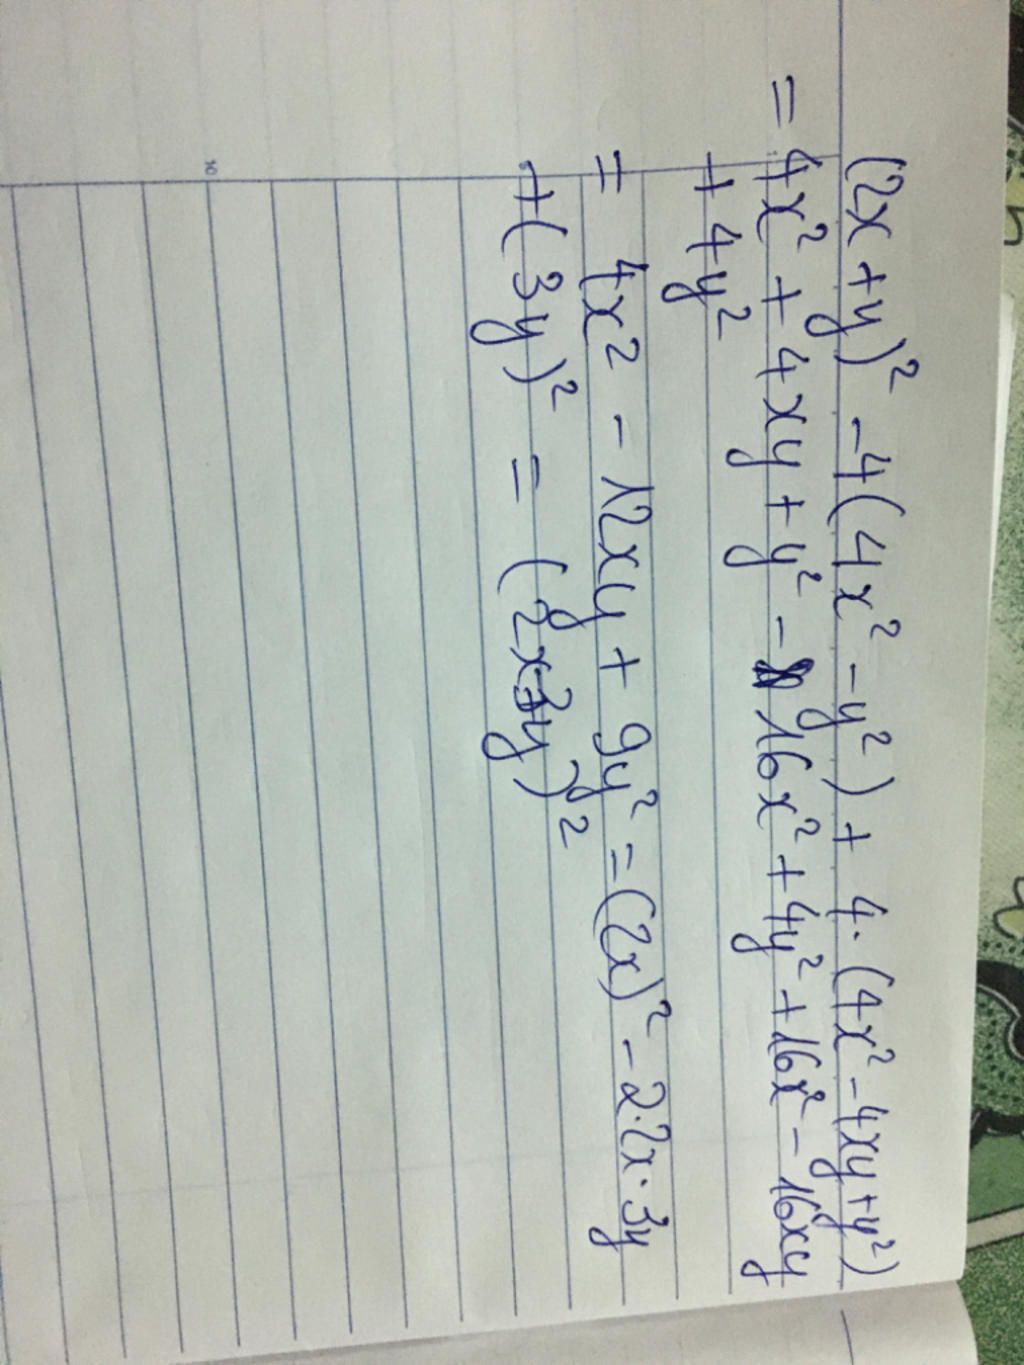 (2x+y)² -4(4x² -y²) + 4.(4x² -4xy+y²)
= 4x² + 4xy + y² - 16x² +4y² +16x² - 16xy
+ 4y²
= 4x² - 12xy + 9y² = (2x)² - 2.2x.3y
+(3y)² = (2x-3y)²
10